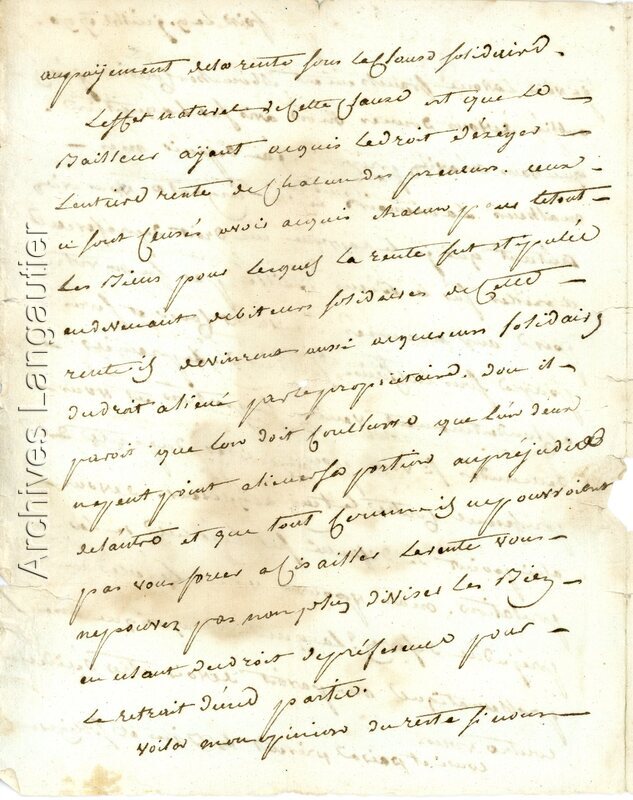 au payement de la rente sous la Clause solidaire.
L'effet naturel de Cette Clause est que le
Bailleur ayant acquis le droit d'éxiger
l'entiere rente de Chacun des preneurs. ceux
ci sont Censés avoir acquis chacun pour le tout
les Biens pour lesquels la rente fut stipulée
en devenant debiteurs solidaires de Cette
rente ils devinrent aussi acquereurs solidaires
du droit aliené par le propriétaire. d'ou il
paroit que l'on doit Conclure que l'un deux
ne peut point aliener sa portion au préjudice
de l'autre et que tout Comme ils ne pourroient
pas vous forcer a la rente vous
ne pouvez pas non plus diviser les Biens
en usant du droit de préference pour
le retrait d'une partie.
Voila mon opinion du reste si vous
Archives Langautier